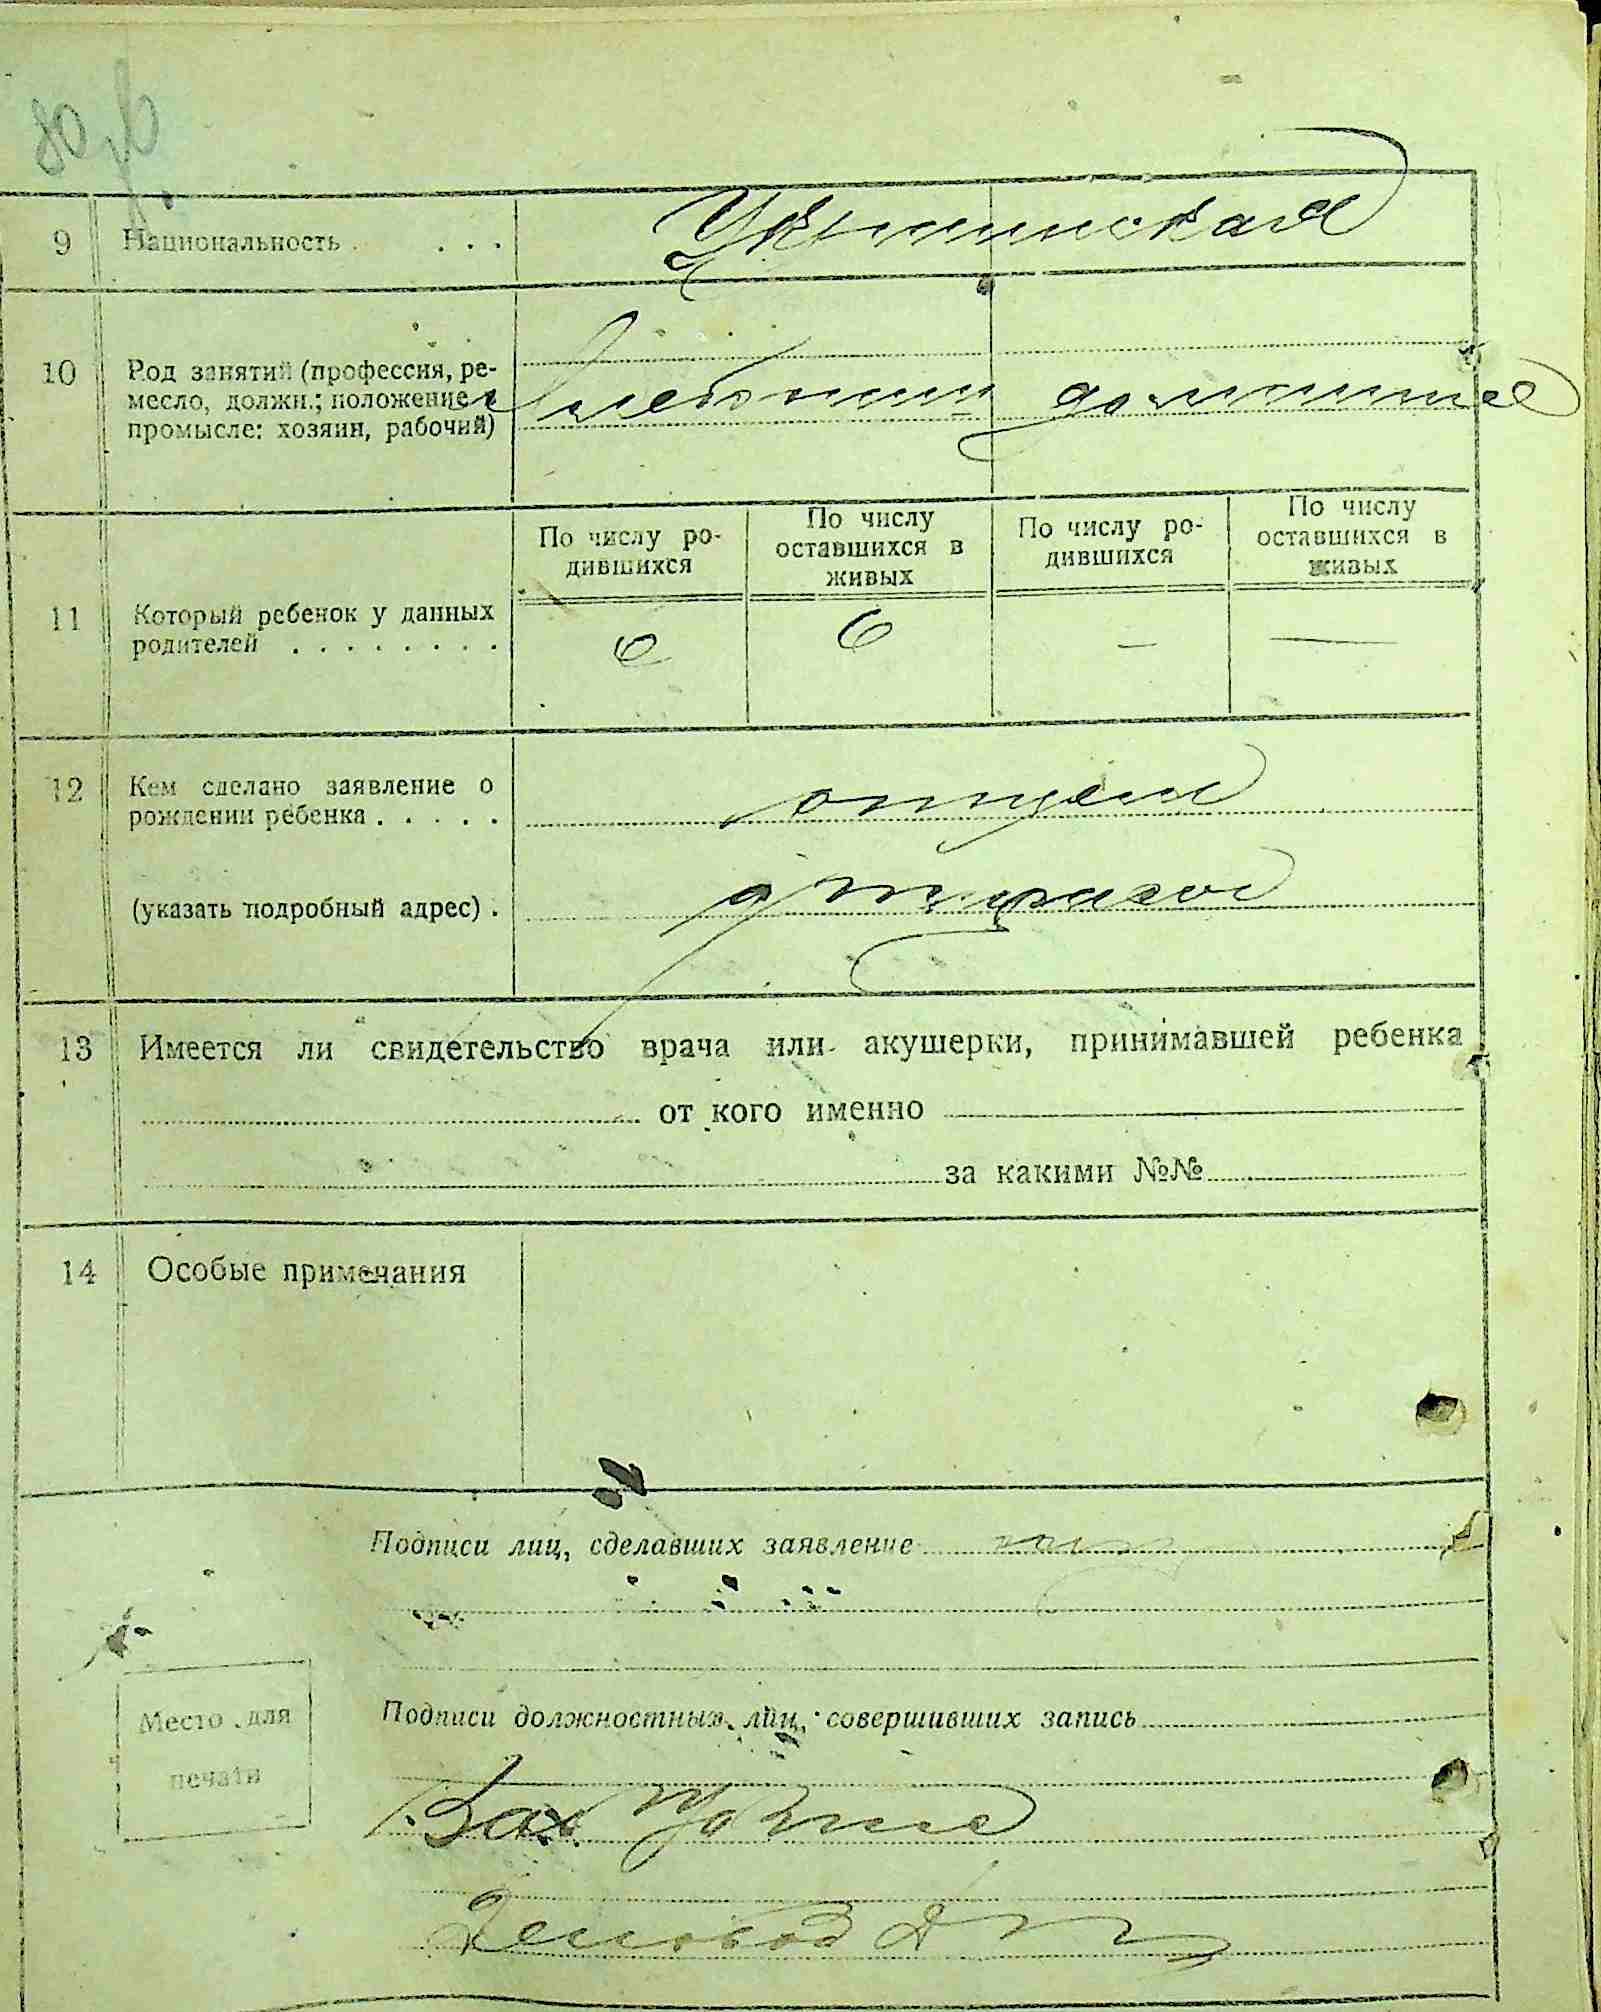 80
9 Национальность . . . .
Украинская
10 Род занятий (профессия, ре-
месло, должн.; положение в
промысле: хозяин, рабочий)
Хлебопаш домашнее
11 Который ребенок у данных
родителей . . . . . . . .
По числу ро-
дившихся
По числу
оставшихся в
живых
По числу ро-
дившихся
По числу
оставшихся в
живых
6 6 — —
12 Кем сделано заявление о
рождении ребенка . . . . .
отцем
(указать подробный адрес) .
13 Имеется ли свидетельство врача или акушерки, принимавшей ребенка
от кого именно
за какими №№
14 Особые примечания
Подписи лиц, сделавших заявление
Место для
печати
Подписи должностных лиц, совершивших запись
Зав
Деловод